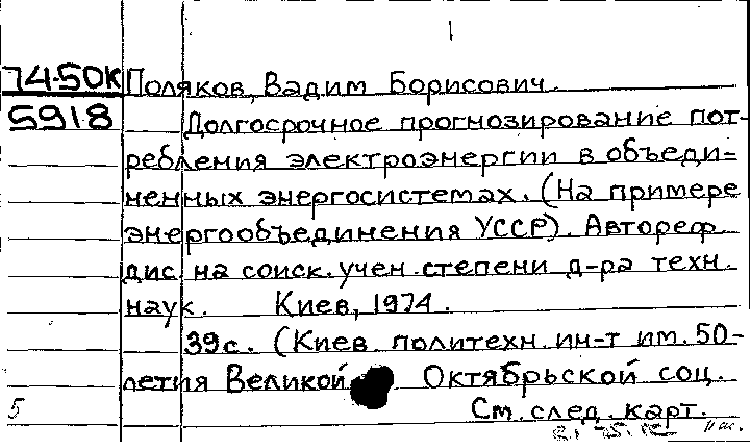 1
74-50К Поляков, Вадим Борисович.
5918 Долгосрочное прогнозирование пот-
ребления электроэнергии в объеди-
ненных энергосистемах. (На примере
энергообъединения УССР). Автореф.
дис. на соиск. учен. степени д-ра техн.
наук. Киев, 1974.
39с. (Киев. политехн. ин-т им. 50-
летия Великой Октябрьской соц.
5 См. след. карт.